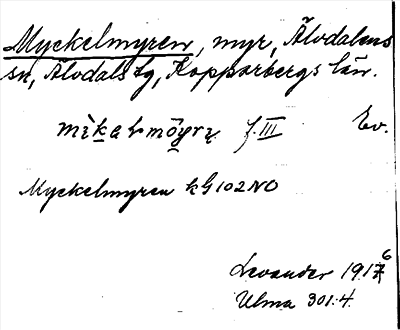 Myckelmyren, myr, Älvdalens
sn, Älvdals tg, Kopparbergs län.
Ev.
Myckelmyren kG 102 NO
Levander 1916
Ulma 301:4.